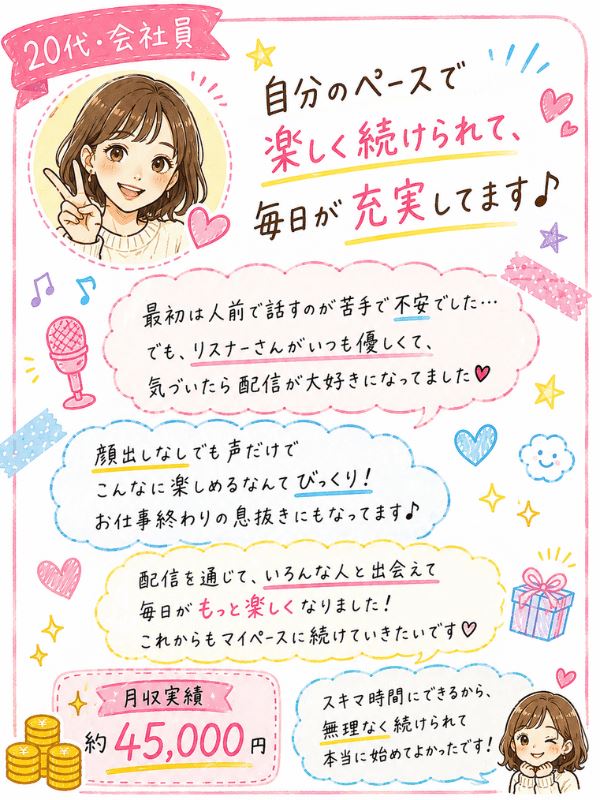 20代・会社員
自分のペースで
楽しく続けられて、
毎日が充実してます♪
最初は人前で話すのが苦手で不安でした…
でも、リスナーさんがいつも優しくて、
気づいたら配信が大好きになってました♥
顔出しなしでも声だけで
こんなに楽しめるなんてびっくり！
お仕事終わりの息抜きにもなってます♪
配信を通じて、いろんな人と出会えて
毎日がもっと楽しくなりました！
これからもマイペースに続けていきたいです♡
月収実績
約45,000円
スキマ時間にできるから、
無理なく続けられて
本当に始めてよかったです！